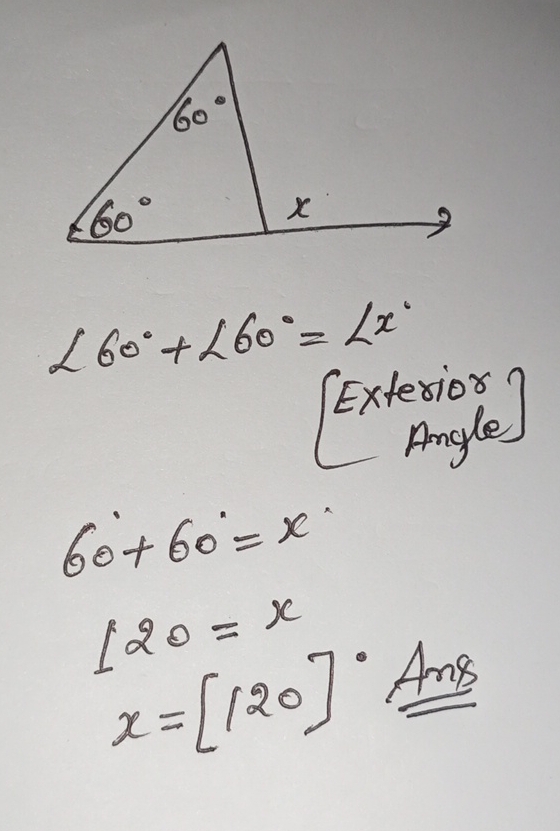 60°
60°
x
∠60° + ∠60° = ∠x°
[Exterior
Angle]
60° + 60° = x°
120 = x
x = [120]° Ans